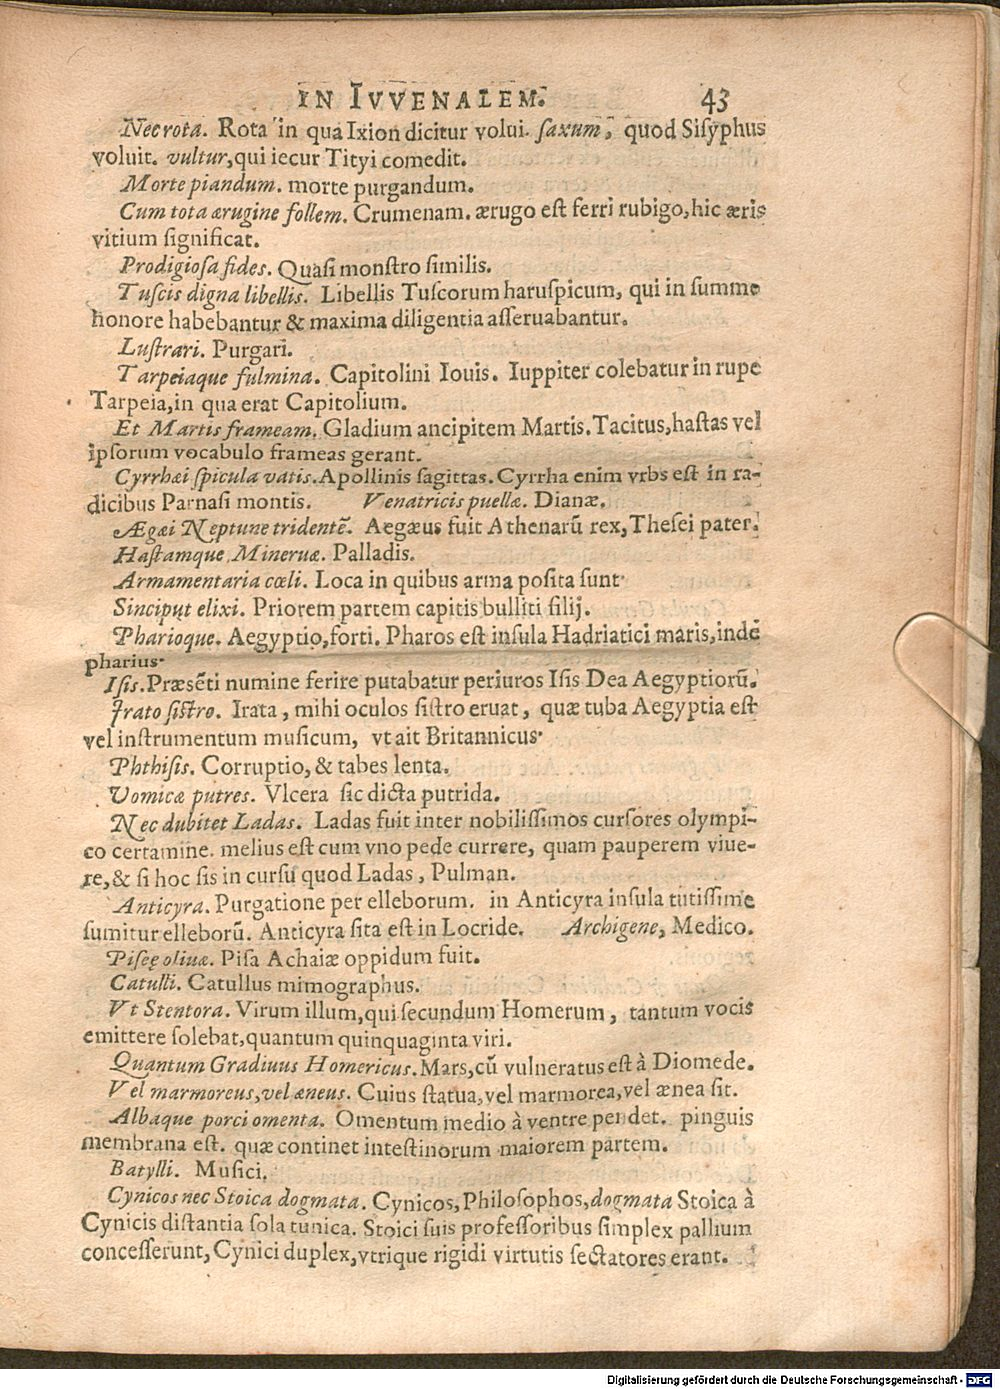 IN IVVENALEM. 43
Nec rota. Rota in qua Ixion dicitur volui. ſaxum, quod Siſyphus
voluit. vultur, qui iecur Tityi comedit.
Morte piandum. morte purgandum.
Cum tota ærugine follem. Crumenam. ærugo eſt ferri rubigo, hic æris
vitium ſignificat.
Prodigioſa fides. Quaſi monſtro ſimilis.
Tuſcis digna libellis. Libellis Tuſcorum haruſpicum, qui in ſummo
honore habebantur & maxima diligentia aſſeruabantur.
Luſtrari. Purgari.
Tarpeiaque fulmina. Capitolini Iouis. Iuppiter colebatur in rupe
Tarpeia, in qua erat Capitolium.
Et Martis frameam. Gladium ancipitem Martis. Tacitus, haſtas vel
ipſorum vocabulo frameas gerant.
Cyrrhæi ſpicula vatis. Apollinis ſagittas. Cyrrha enim vrbs eſt in ra-
dicibus Parnaſi montis. Venatricis puellæ. Dianæ.
Ægæi Neptune tridentẽ. Aegæus fuit Athenarũ rex, Theſei pater.
Haſtamque Mineruæ. Palladis.
Armamentaria cœli. Loca in quibus arma poſita ſunt.
Sinciput elixi. Priorem partem capitis bulliti filij.
Pharioque. Aegyptio, forti. Pharos eſt inſula Hadriatici maris, inde
pharius.
Iſis. Præsẽti numine ferire putabatur periuros Iſis Dea Aegyptiorũ.
Irato ſiſtro. Irata, mihi oculos ſiſtro eruat, quæ tuba Aegyptia eſt
vel inſtrumentum muſicum, vt ait Britannicus.
Phthiſis. Corruptio, & tabes lenta.
Vomicæ putres. Vlcera ſic dicta putrida.
Nec dubitet Ladas. Ladas fuit inter nobiliſſimos curſores olympi-
co certamine. melius eſt cum vno pede currere, quam pauperem viue-
re, & ſi hoc ſis in curſu quod Ladas, Pulman.
Anticyra. Purgatione per elleborum. in Anticyra inſula tutiſſime
ſumitur elleborũ. Anticyra ſita eſt in Locride. Archigene, Medico.
Piſeę oliuæ. Piſa Achaiæ oppidum fuit.
Catulli. Catullus mimographus.
Vt Stentora. Virum illum, qui ſecundum Homerum, tantum vocis
emittere ſolebat, quantum quinquaginta viri.
Quantum Gradiuus Homericus. Mars, cũ vulneratus eſt à Diomede.
Vel marmoreus, vel æneus. Cuius ſtatua, vel marmorea, vel ænea ſit.
Albaque porci omenta. Omentum medio à ventre pendet. pinguis
membrana eſt. quæ continet inteſtinorum maiorem partem.
Batylli. Muſici.
Cynicos nec Stoica dogmata. Cynicos, Philoſophos, dogmata Stoica à
Cynicis diſtantia ſola tunica. Stoici ſuis profeſſoribus ſimplex pallium
conceſſerunt, Cynici duplex, vtrique rigidi virtutis ſectatores erant.
Digitalisierung gefördert durch die Deutsche Forschungsgemeinschaft - DFG